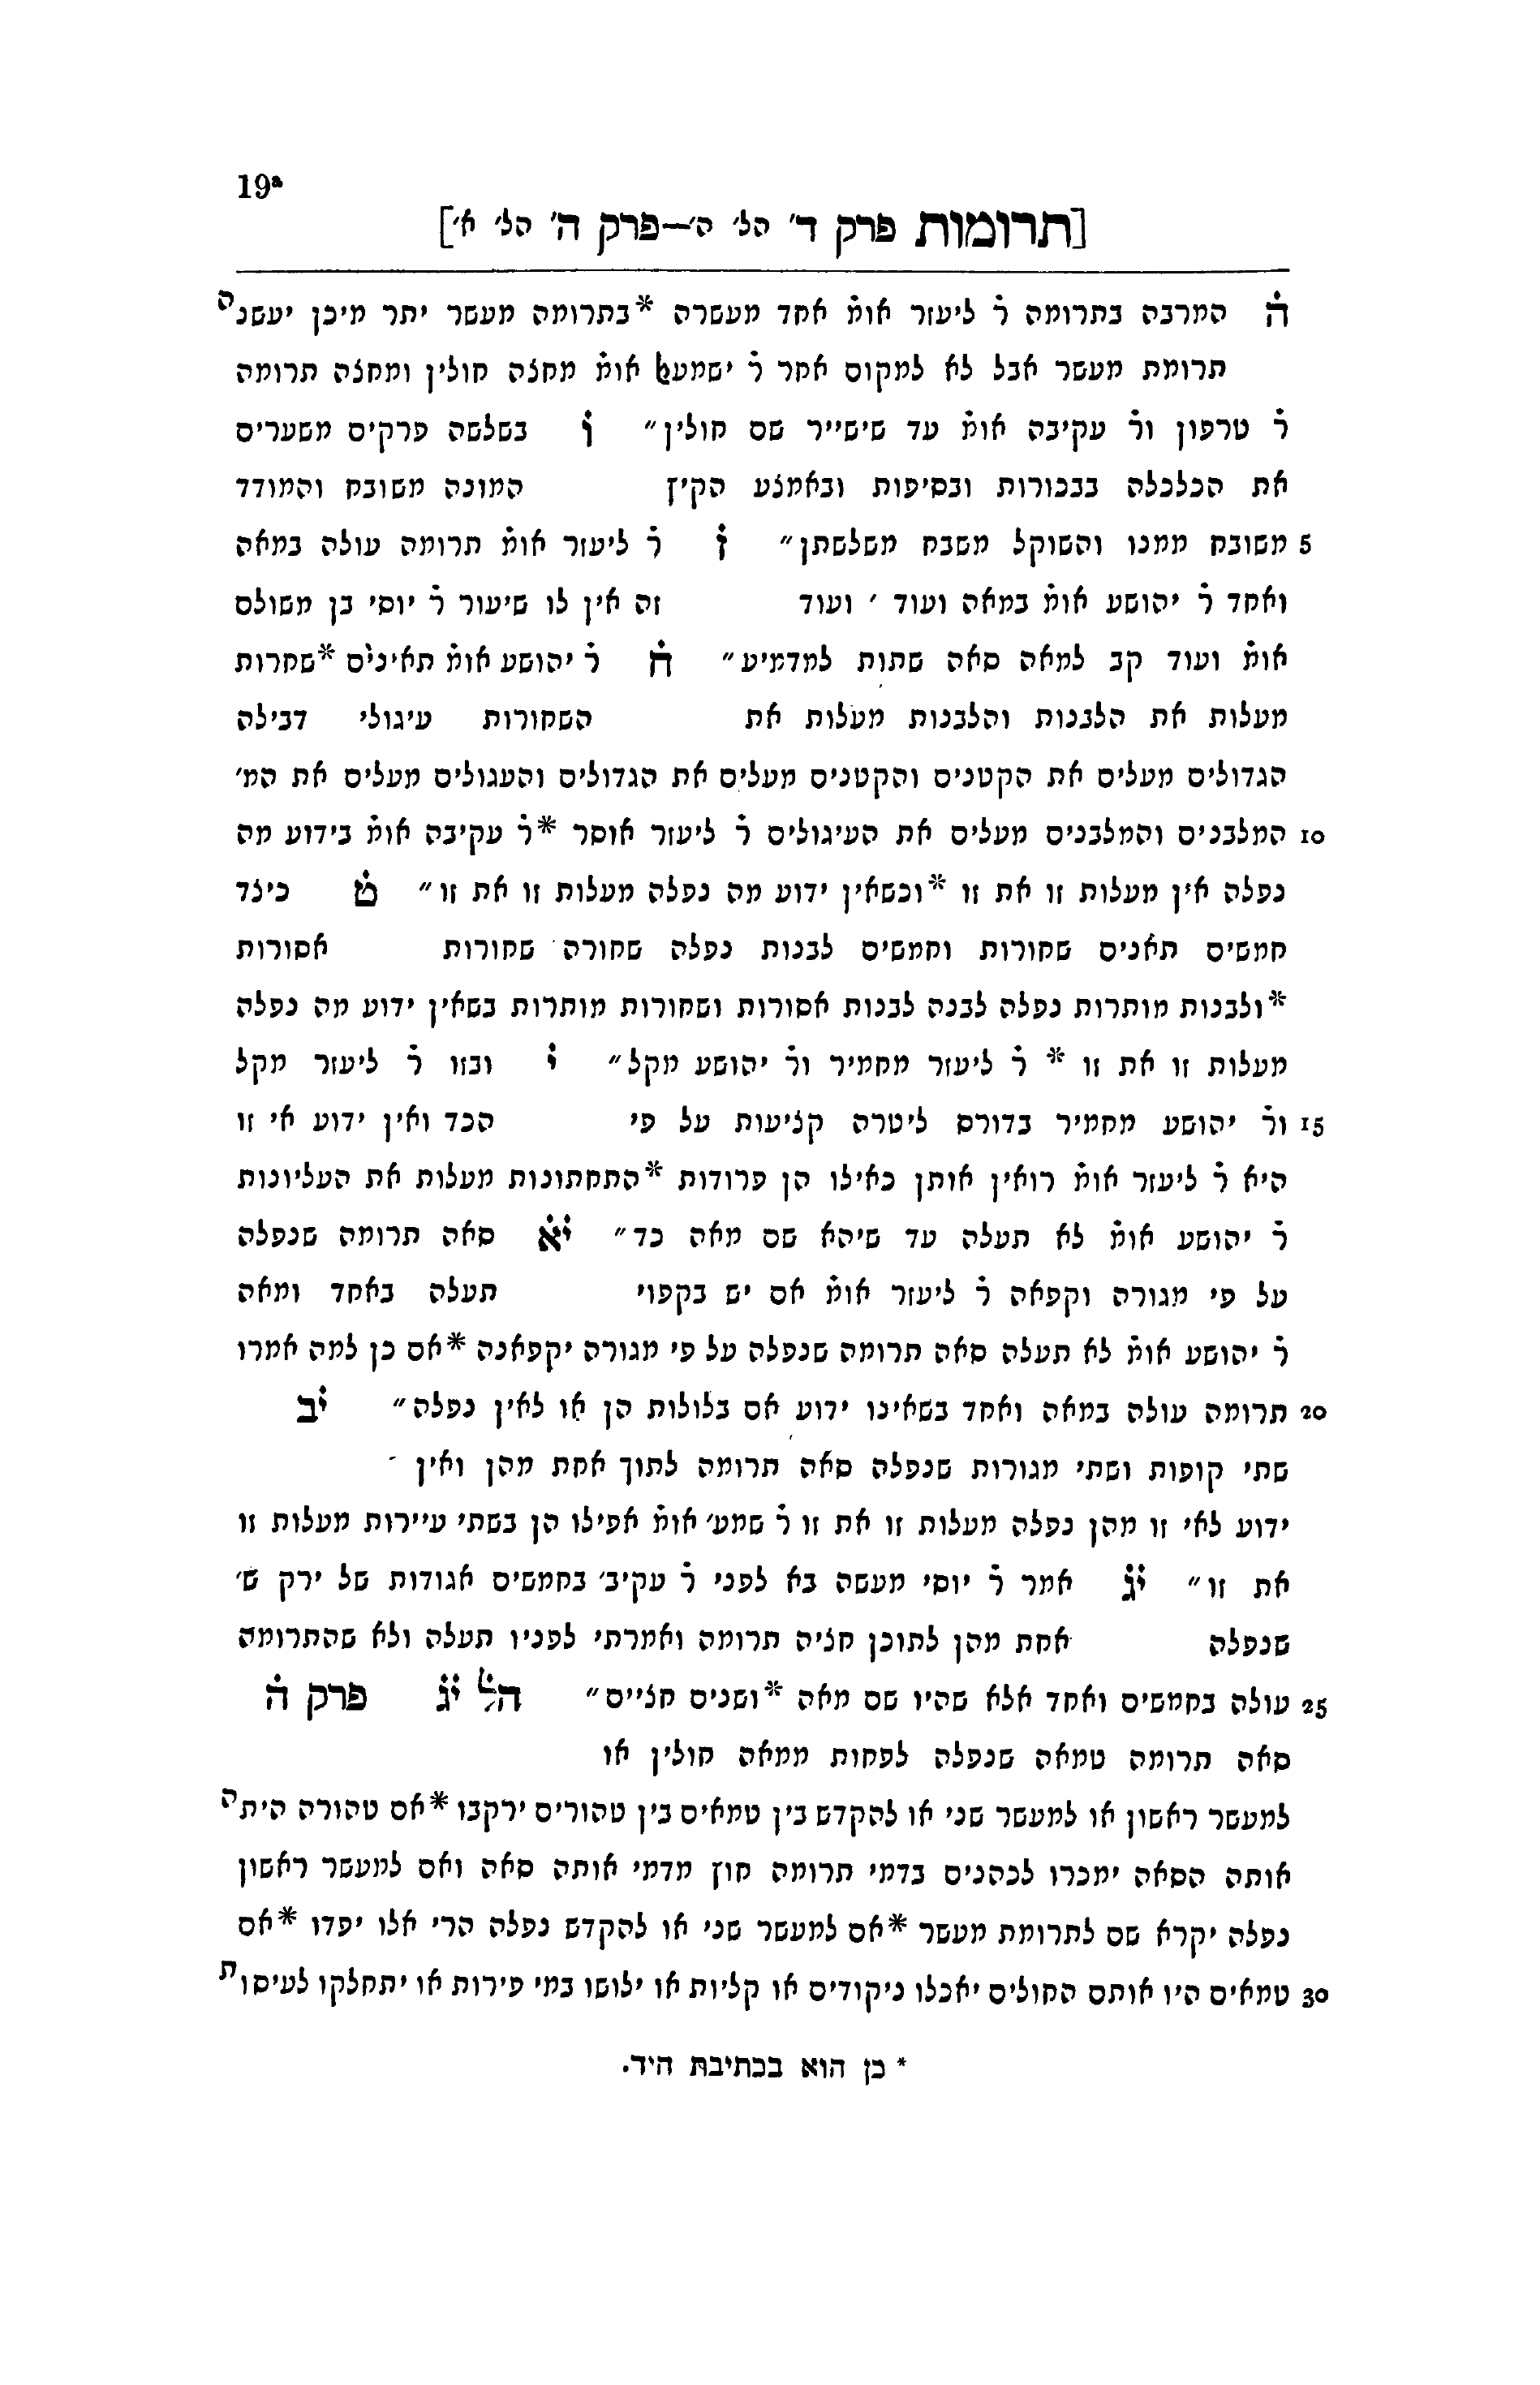 19a
[תרומות פרק ד' הל' ה'—פרק ה' הל' א']
ה̇ המרבה בתרומה ר̇ ליעזר אומ̇ אחד מעשרה *בתרומה מעשר יתר מיכן יעשנה
תרומת מעשר אבל לא למקום אחר ר̇ ישמעאל אומ̇ מחצה חולין ומחצה תרומה
ר̇ טרפון ור̇ עקיבה אומ̇ עד שישייר שם חולין״ ו̇ בשלשה פרקים משערים
את הכלכלה בבכורות ובסיפות ובאמצע הקיץ המונה משובח והמודד
5 משובח ממנו והשוקל משבח משלשתן״ ז̇ ר̇ ליעזר אומ̇ תרומה עולה במאה
ואחד ר̇ יהושע אומ̇ במאה ועוד ׳ ועוד זה אין לו שיעור ר̇ יוסי בן משולם
אומ̇ ועוד קב למאה סאה שתות למדמיע״ ח̇ ר̇ יהושע אומ̇ תאינים *שחרות
מעלות את הלבנות והלבנות מעלות את השחורות עיגולי דבילה
הגדולים מעלים את הקטנים והקטנים מעלים את הגדולים והעגולים מעלים את המ׳
10 המלבנים והמלבנים מעלים את העיגולים ר̇ ליעזר אוסר *ר̇ עקיבה אומ̇ בידוע מה
נפלה אין מעלות זו את זו *וכשאין ידוע מה נפלה מעלות זו את זו״ ט̇ כיצד
חמשים תאנים שחורות וחמשים לבנות נפלה שחורה שחורות אסורות
*ולבנות מותרות נפלה לבנה לבנות אסורות ושחורות מותרות בשאין ידוע מה נפלה
מעלות זו את זו * ר̇ ליעזר מחמיר ור̇ יהושע מקל״ י̇ ובזו ר̇ ליעזר מקל
15 ור̇ יהושע מחמיר בדורס ליטרה קציעות על פי הכד ואין ידוע אי זו
היא ר̇ ליעזר אומ̇ רואין אותן כאילו הן פרודות *התחתונות מעלות את העליונות
ר̇ יהושע אומ̇ לא תעלה עד שיהא שם מאה כד״ י̇א̇ סאה תרומה שנפלה
על פי מגורה וקפאה ר̇ ליעזר אומ̇ אם יש בקפוי תעלה באחד ומאה
ר̇ יהושע אומ̇ לא תעלה סאה תרומה שנפלה על פי מגורה יקפאנה *אם כן למה אמרו
20 תרומה עולה במאה ואחד בשאינו ידוע אם בלולות הן או לאין נפלה״ י̇ב
שתי קופות ושתי מגורות שנפלה סאה תרומה לתוך אחת מהן ואין
ידוע לאי זו מהן נפלה מעלות זו את זו ר̇ שמע׳ אומ̇ אפילו הן בשתי עיירות מעלות זו
את זו״ י̇ג̇ אמר ר̇ יוסי מעשה בא לפני ר̇ עקיב׳ בחמשים אגודות של ירק ש׳
שנפלה אחת מהן לתוכן חציה תרומה ואמרתי לפניו תעלה ולא שהתרומה
25 עולה בחמשים ואחד אלא שהיו שם מאה *ושנים חציים״ הל̇ י̇ג̇ פרק ה̇
סאה תרומה טמאה שנפלה לפחות ממאה חולין או
למעשר ראשון או למעשר שני או להקדש בין טמאים בין טהורים ירקבו *אם טהורה היתה
אותה הסאה ימכרו לכהנים בדמי תרומה חוץ מדמי אותה סאה ואם למעשר ראשון
נפלה יקרא שם לתרומת מעשר *אם למעשר שני או להקדש נפלה הרי אלו יפדו *אם
30 טמאים היו אותם החולים יאכלו ניקודים או קליות או ילושו במי פירות או יתחלקו לעיסות
* כן הוא בכתיבת היד.